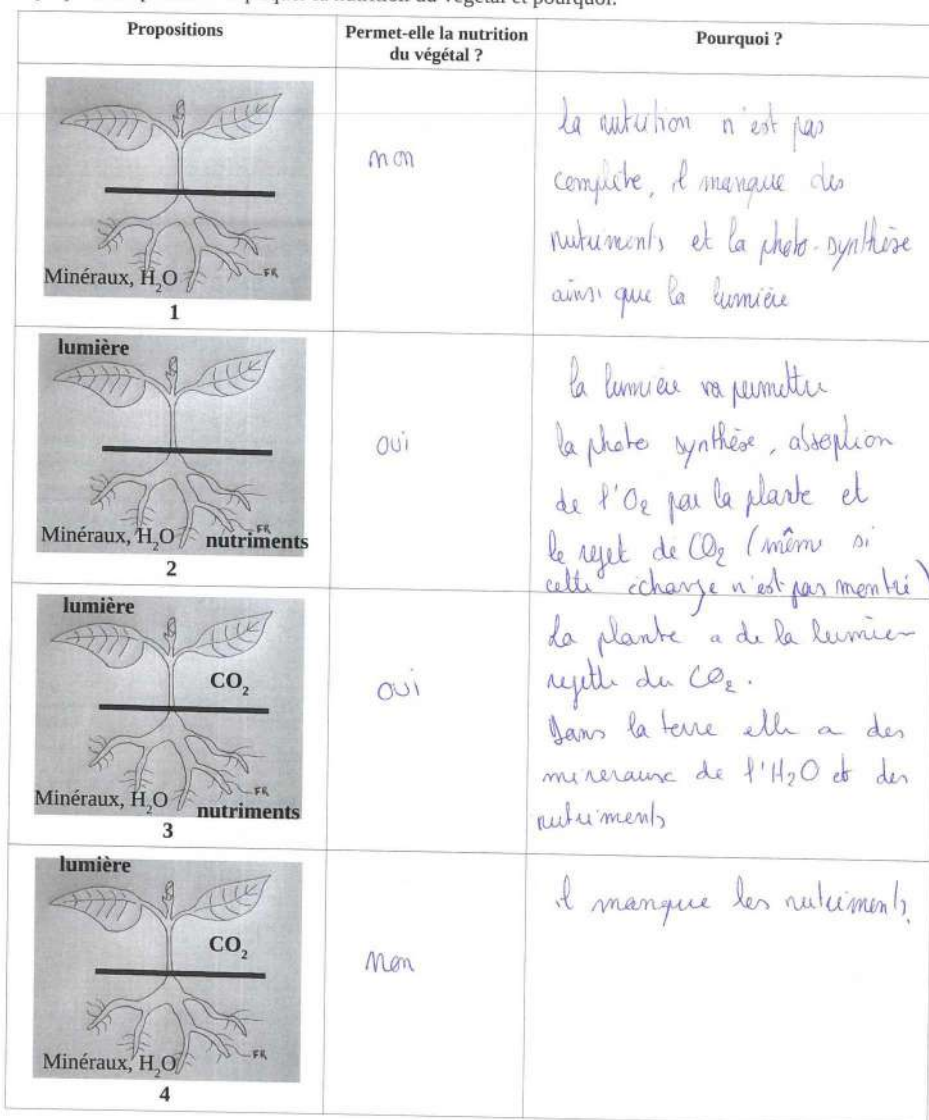 Propositions
Permet-elle la nutrition
du végétal ?
Pourquoi ?
Minéraux, H₂O
FR
1
non
la nutrition n'est pas
complète, il manque des
nutriments et la photo-synthèse
ainsi que la lumière
lumière
Minéraux, H₂O
FR
nutriments
2
oui
la lumière va permettre
la photo synthèse, absoption
de l'O₂ par la plante et
le rejet de CO₂ (même si
cette échange n'est pas montré)
lumière
CO₂
Minéraux, H₂O
FR
nutriments
3
oui
La plante a de la lumier
rejette du CO₂.
Dans la terre elle a des
mineraux de l'H₂O et des
nutriments
lumière
CO₂
Minéraux, H₂O
FR
4
Non
il manque les nutriments.